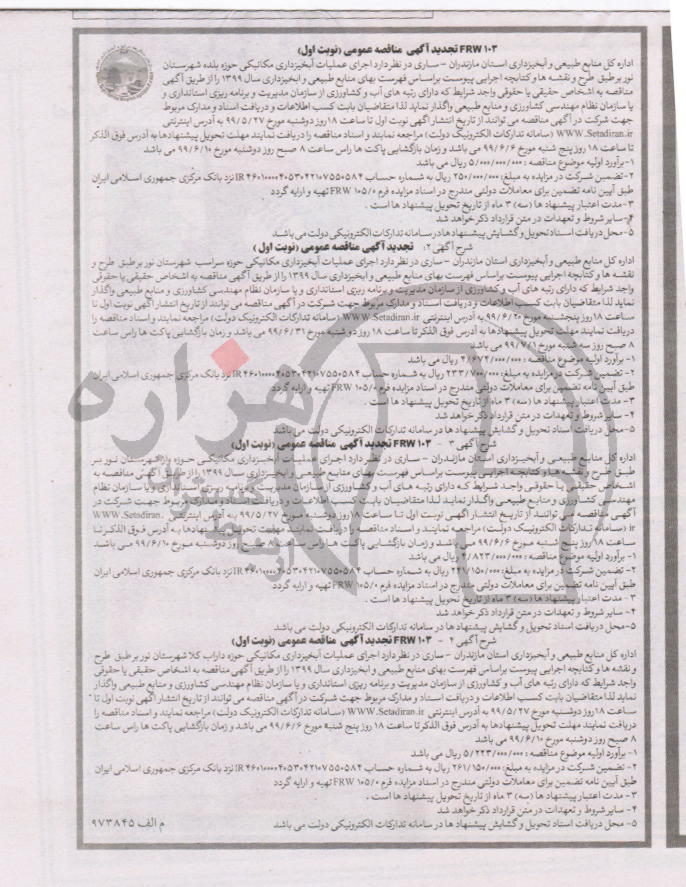 FRW ۱۰۳ تجدید آگهی مناقصه عمومی (نوبت اول)
اداره کل منابع طبیعی و آبخیزداری استان مازندران - ساری در نظر دارد اجرای عملیات آبخیزداری مکانیکی حوزه بلده شهرستان
نور بر طبق طرح و نقشه ها و کتابچه اجرایی پیوست براساس فهرست بهای منابع طبیعی و ابخیزداری سال ۱۳۹۹ را از طریق آگهی
مناقصه به اشخاص حقیقی یا حقوقی واجد شرایط که دارای رتبه های آب و کشاورزی از سازمان مدیریت و برنامه ریزی استانداری و
یا سازمان نظام مهندسی کشاورزی و منابع طبیعی واگذار نماید لذا متقاضیان بابت کسب اطلاعات و دریافت اسناد و مدارک مربوط
جهت شرکت در آگهی مناقصه می توانند از تاریخ انتشار آگهی نوبت اول تا ساعت ۱۸ روز دوشنبه مورخ ۹۹/۵/۲۷ به آدرس اینترنتی
WWW.Setadiran.ir (سامانه تدارکات الکترونیک دولت) مراجعه نمایند و اسناد مناقصه را دریافت نمایند مهلت تحویل پیشنهادها به آدرس فوق الذکر
تا ساعت ۱۸ روز پنج شنبه مورخ ۹۹/۶/۶ می باشد و زمان بازگشایی پاکت ها راس ساعت ۸ صبح روز دوشنبه مورخ ۹۹/۶/۱۰ می باشد
۱- برآورد اولیه موضوع مناقصه : ۵/۰۰۰/۰۰۰/۰۰۰ ریال می باشد
۲- تضمین شرکت در مزایده به مبلغ: ۲۵۰/۰۰۰/۰۰۰ ریال به شماره حساب IR ۴۶۰۱۰۰۰۰۴۰۵۳۰۴۲۱۰۷۵۵۰۵۸۴ نزد بانک مرکزی جمهوری اسلامی ایران
طبق آیین نامه تضمین برای معاملات دولتی مندرج در اسناد مزایده فرم FRW ۱۰۵/۰ تهیه و ارایه گردد
۳- مدت اعتبار پیشنهاد ها (سه) ۳ ماه از تاریخ تحویل پیشنهاد ها است .
۴- سایر شروط و تعهدات در متن قرارداد ذکر خواهد شد
۵- محل دریافت اسناد تحویل و گشایش پیشنهاد ها در سامانه تدارکات الکترونیکی دولت می باشد
شرح آگهی ۲: تجدید آگهی مناقصه عمومی (نوبت اول )
اداره کل منابع طبیعی و آبخیزداری استان مازندران - ساری در نظر دارد اجرای عملیات آبخیزداری مکانیکی حوزه سراسب شهرستان نور بر طبق طرح و
نقشه ها و کتابچه اجرایی پیوست براساس فهرست بهای منابع طبیعی و ابخیزداری سال ۱۳۹۹ را از طریق آگهی مناقصه به اشخاص حقیقی یا حقوقی
واجد شرایط که دارای رتبه های آب و کشاورزی از سازمان مدیریت و برنامه ریزی استانداری و یا سازمان نظام مهندسی کشاورزی و منابع طبیعی واگذار
نماید لذا متقاضیان بابت کسب اطلاعات و دریافت اسناد و مدارک مربوط جهت شرکت در آگهی مناقصه می توانند از تاریخ انتشار آگهی نوبت اول تا
ساعت ۱۸ روز پنجشنبه مورخ ۹۹/۶/۲۰ به آدرس اینترنتی WWW.Setadiran.ir (سامانه تدارکات الکترونیک دولت) مراجعه نمایند و اسناد مناقصه را
دریافت نمایند مهلت تحویل پیشنهادها به آدرس فوق الذکر تا ساعت ۱۸ روز دوشنبه مورخ ۹۹/۶/۳۱ می باشد و زمان بازگشایی پاکت ها راس ساعت
۸ صبح روز سه شنبه مورخ ۹۹/۷/۱ می باشد
۱- برآورد اولیه موضوع مناقصه : ۴/۶۷۴/۰۰۰/۰۰۰ ریال می باشد
۲- تضمین شرکت در مزایده به مبلغ: ۲۳۳/۷۰۰/۰۰۰ ریال به شماره حساب IR ۴۶۰۱۰۰۰۰۴۰۵۳۰۴۲۱۰۷۵۵۰۵۸۴ نزد بانک مرکزی جمهوری اسلامی ایران
طبق آیین نامه تضمین برای معاملات دولتی مندرج در اسناد مزایده فرم FRW ۱۰۵/۰ تهیه و ارایه گردد
۳- مدت اعتبار پیشنهاد ها (سه) ۳ ماه از تاریخ تحویل پیشنهاد ها است .
۴- سایر شروط و تعهدات در متن قرارداد ذکر خواهد شد
۵- محل دریافت اسناد تحویل و گشایش پیشنهاد ها در سامانه تدارکات الکترونیکی دولت می باشد
شرح آگهی ۳ - FRW ۱۰۳ تجدید آگهی مناقصه عمومی (نوبت اول)
اداره کل منابع طبیعی و آبخیزداری استان مازندران - ساری در نظر دارد اجرای عملیات آبخیزداری مکانیکی حوزه واز شهرستان نور بر
طبق طرح و نقشه ها و کتابچه اجرایی پیوست براساس فهرست بهای منابع طبیعی و ابخیزداری سال ۱۳۹۹ را از طریق آگهی مناقصه به
اشخاص حقیقی یا حقوقی واجد شرایط که دارای رتبه های آب و کشاورزی از سازمان مدیریت و برنامه ریزی استانداری و یا سازمان نظام
مهندسی کشاورزی و منابع طبیعی واگذار نماید لذا متقاضیان بابت کسب اطلاعات و دریافت اسناد و مدارک مربوط جهت شرکت در
آگهی مناقصه می توانند از تاریخ انتشار آگهی نوبت اول تا ساعت ۱۸ روز دوشنبه مورخ ۹۹/۵/۲۷ به آدرس اینترنتی WWW.Setadiran.
ir (سامانه تدارکات الکترونیک دولت) مراجعه نمایند و اسناد مناقصه را دریافت نمایند مهلت تحویل پیشنهادها به آدرس فوق الذکر تا
ساعت ۱۸ روز پنج شنبه مورخ ۹۹/۶/۶ می باشد و زمان بازگشایی پاکت ها راس ساعت ۸ صبح روز دوشنبه مورخ ۹۹/۶/۱۰ می باشد
۱- برآورد اولیه موضوع مناقصه : ۴/۸۲۳/۰۰۰/۰۰۰ ریال می باشد
۲- تضمین شرکت در مزایده به مبلغ: ۲۴۱/۱۵۰/۰۰۰ ریال به شماره حساب IR ۴۶۰۱۰۰۰۰۴۰۵۳۰۴۲۱۰۷۵۵۰۵۸۴ نزد بانک مرکزی جمهوری اسلامی ایران
طبق آیین نامه تضمین برای معاملات دولتی مندرج در اسناد مزایده فرم FRW ۱۰۵/۰ تهیه و ارایه گردد
۳- مدت اعتبار پیشنهاد ها (سه) ۳ ماه از تاریخ تحویل پیشنهاد ها است .
۴- سایر شروط و تعهدات در متن قرارداد ذکر خواهد شد
۵- محل دریافت اسناد تحویل و گشایش پیشنهاد ها در سامانه تدارکات الکترونیکی دولت می باشد
شرح آگهی ۴ - FRW ۱۰۳ تجدید آگهی مناقصه عمومی (نوبت اول)
اداره کل منابع طبیعی و آبخیزداری استان مازندران - ساری در نظر دارد اجرای عملیات آبخیزداری مکانیکی حوزه داراب کلا شهرستان نور بر طبق طرح
و نقشه ها و کتابچه اجرایی پیوست براساس فهرست بهای منابع طبیعی و ابخیزداری سال ۱۳۹۹ را از طریق آگهی مناقصه به اشخاص حقیقی یا حقوقی
واجد شرایط که دارای رتبه های آب و کشاورزی از سازمان مدیریت و برنامه ریزی استانداری و یا سازمان نظام مهندسی کشاورزی و منابع طبیعی واگذار
نماید لذا متقاضیان بابت کسب اطلاعات و دریافت اسناد و مدارک مربوط جهت شرکت در آگهی مناقصه می توانند از تاریخ انتشار آگهی نوبت اول تا
ساعت ۱۸ روز دوشنبه مورخ ۹۹/۵/۲۷ به آدرس اینترنتی WWW.Setadiran.ir (سامانه تدارکات الکترونیک دولت) مراجعه نمایند و اسناد مناقصه را
دریافت نمایند مهلت تحویل پیشنهادها به آدرس فوق الذکر تا ساعت ۱۸ روز پنج شنبه مورخ ۹۹/۶/۶ می باشد و زمان بازگشایی پاکت ها راس ساعت
۸ صبح روز دوشنبه مورخ ۹۹/۶/۱۰ می باشد
۱- برآورد اولیه موضوع مناقصه : ۵/۲۲۳/۰۰۰/۰۰۰ ریال می باشد
۲- تضمین شرکت در مزایده به مبلغ: ۲۶۱/۱۵۰/۰۰۰ ریال به شماره حساب IR ۴۶۰۱۰۰۰۰۴۰۵۳۰۴۲۱۰۷۵۵۰۵۸۴ نزد بانک مرکزی جمهوری اسلامی ایران
طبق آیین نامه تضمین برای معاملات دولتی مندرج در اسناد مزایده فرم FRW ۱۰۵/۰ تهیه و ارایه گردد
۳- مدت اعتبار پیشنهاد ها (سه) ۳ ماه از تاریخ تحویل پیشنهاد ها است .
۴- سایر شروط و تعهدات در متن قرارداد ذکر خواهد شد
۵- محل دریافت اسناد تحویل و گشایش پیشنهاد ها در سامانه تدارکات الکترونیکی دولت می باشد
م الف ۹۷۳۸۴۵
هزاره